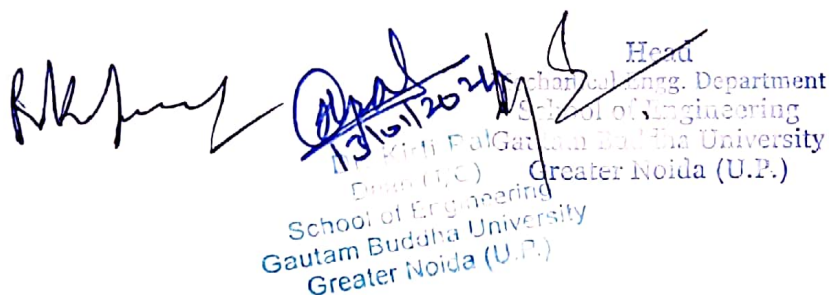 Head
Mechanical Engg. Department
School of Engineering
Gautam Buddha University
Greater Noida (U.P.)
13/01/2024
Kirti Pal
Dean (I/C)
School of Engineering
Gautam Buddha University
Greater Noida (U.P.)